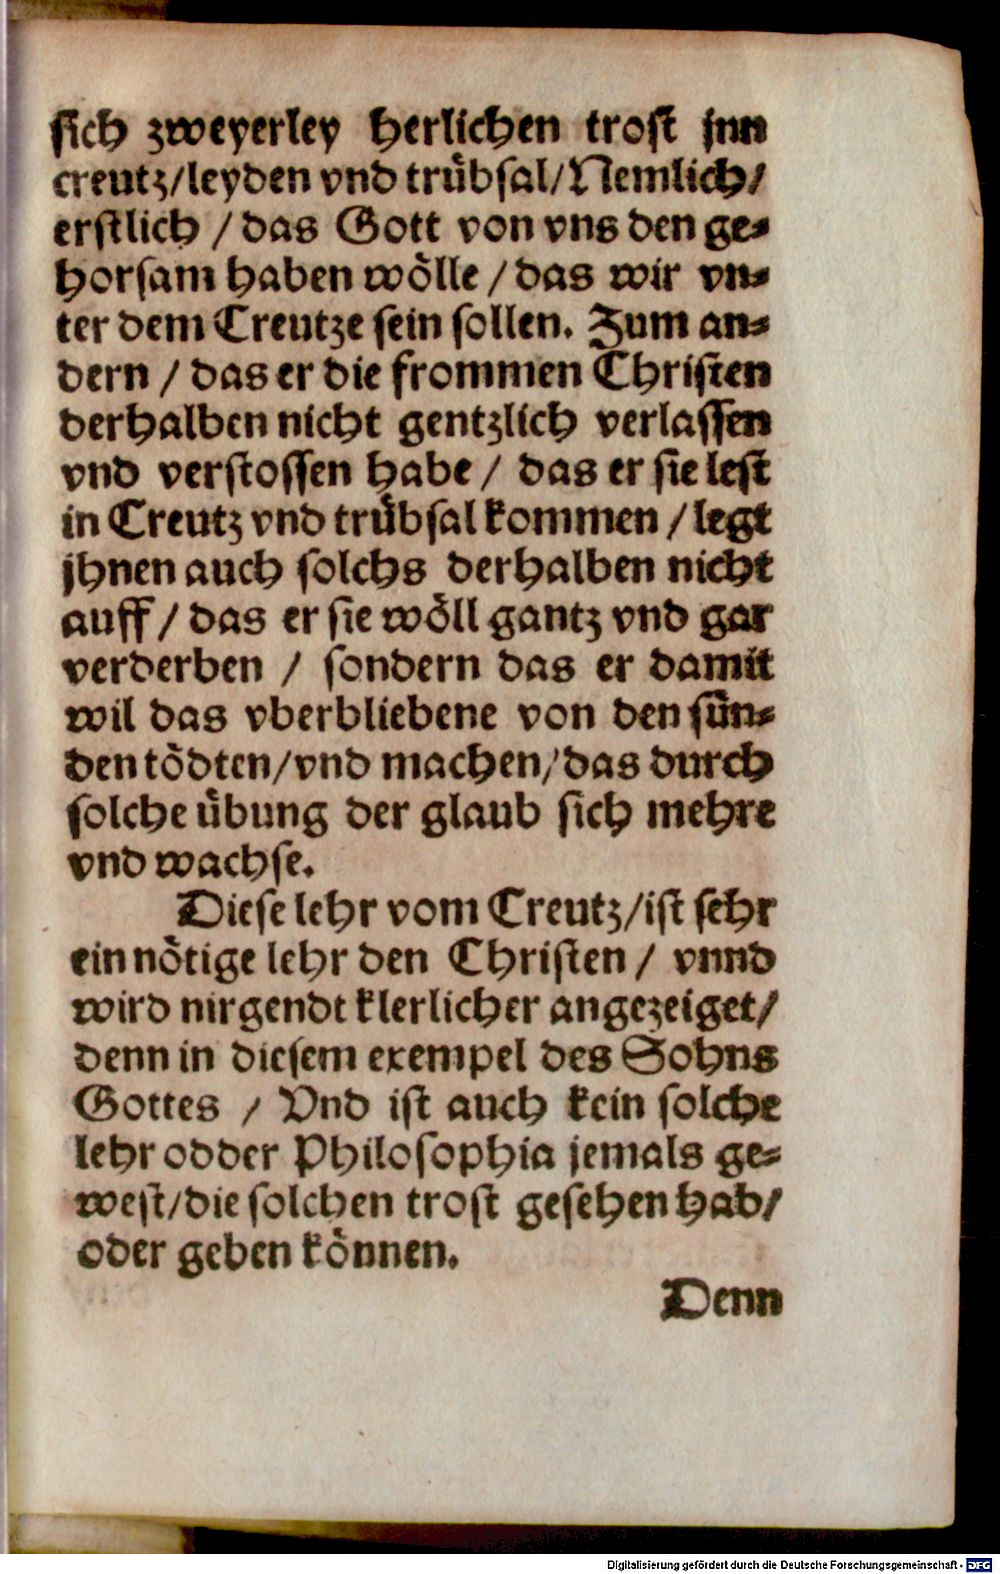 sich zweyerley herlichen trost jnn
creutz/leyden vnd trübsal/Nemlich/
erstlich / das Gott von vns den ge-
horsam haben wölle / das wir vn-
ter dem Creutze sein sollen. Zum an-
dern / das er die frommen Christen
derhalben nicht gentzlich verlassen
vnd verstossen habe / das er sie lest
in Creutz vnd trübsal kommen / legt
jhnen auch solchs derhalben nicht
auff / das er sie wöll gantz vnd gar
verderben / sondern das er damit
wil das vberbliebene von den sün-
den tödten/vnd machen/das durch
solche übung der glaub sich mehre
vnd wachse.
Diese lehr vom Creutz/ist sehr
ein nötige lehr den Christen / vnnd
wird nirgendt klerlicher angezeiget/
denn in diesem exempel des Sohns
Gottes / Vnd ist auch kein solche
lehr odder Philosophia jemals ge-
west/die solchen trost gesehen hab/
oder geben können.
Denn
Digitalisierung gefördert durch die Deutsche Forschungsgemeinschaft - DFG